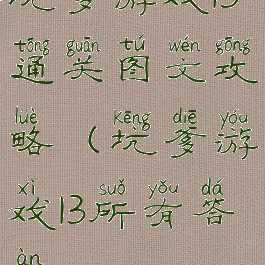 坑爹游戏13
tōng guān tú wén gōng
通关图文攻
lüè kēng diē yóu
略（坑爹游
xì suǒ yǒu dá
戏13所有答
àn